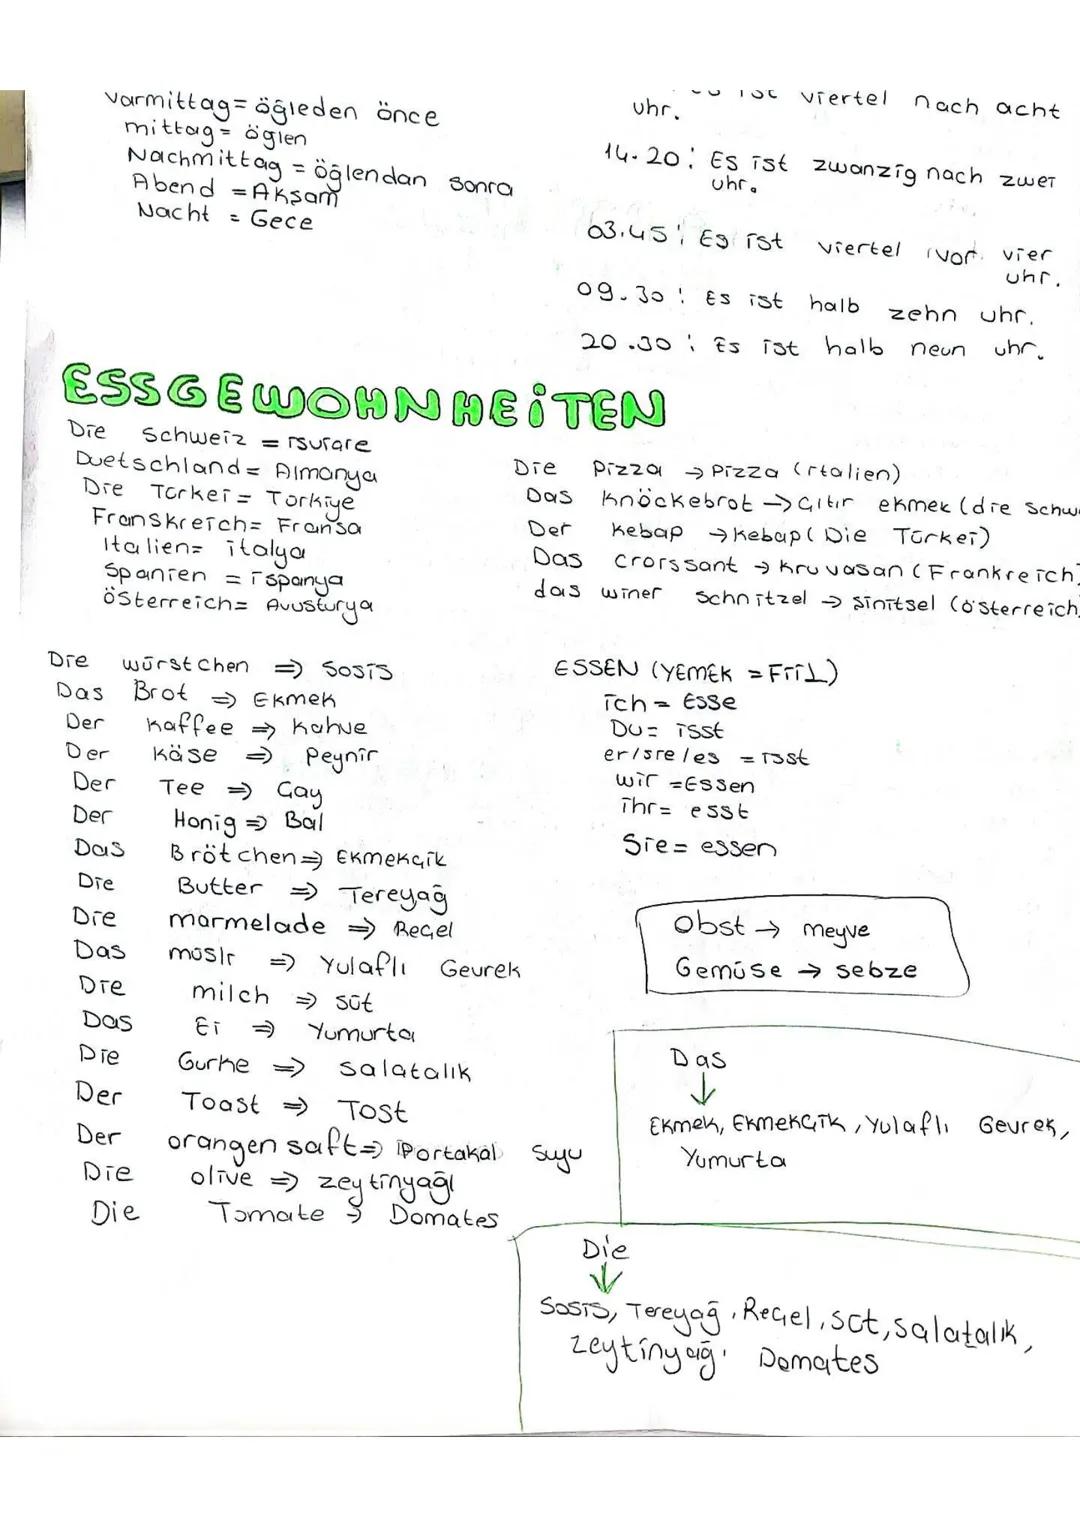 Varmittag= öğleden önce
mittag= öğlen
Nachmittag = öğlendan sonra
Abend = Akşam
Nacht = Gece
ist viertel nach acht
uhr.
14.20: Es ist zwanzig nach zwei
uhr.
03.45: Es ist viertel vor vier
uhr.
09.30: Es ist halb zehn uhr.
20.30: Es ist halb neun uhr.
ESSGEWOHNHEiTEN
Die Schweiz = isviçre
Duetschland= Almanya
Die Törkei= Törkiye
Franskreich= Fransa
Italien= italya
Spanien = ispanya
österreich= Avusturya
Die Pizza → Pizza (italien)
Das Knöckebrot → Çıtır ekmek (die Schw
Der Kebap → Kebap (Die Törkei)
Das croissant → Kruvasan (Frankreich)
das winer Schnitzel → Şinitsel (österreich)
Die würstchen ⇒ Sosis
Das Brot ⇒ Ekmek
Der Kaffee ⇒ Kahve
Der Käse ⇒ Peynir
Der Tee ⇒ Çay
Der Honig ⇒ Bal
Das Brötchen ⇒ Ekmekçik
Die Butter ⇒ Tereyağ
Die marmelade ⇒ Reçel
Das mösli ⇒ Yulaflı Gevrek
Die milch ⇒ süt
Das Ei ⇒ Yumurta
Die Gurke ⇒ salatalık
Der Toast ⇒ Tost
Der orangensaft ⇒ Portakal Suyu
Die olive ⇒ zeytinyağı
Die Tomate → Domates
ESSEN (YEMEK = FiiL)
ich = Esse
Du= isst
er/sie/es = isst
wir = Essen
ihr= esst
Sie= essen
Obst → meyve
Gemüse → sebze
Das
↓
Ekmek, Ekmekçik, Yulaflı Gevrek,
Yumurta
Die
↓
Sosis, Tereyağ, Reçel, süt, salatalık,
zeytinyağ, Domates